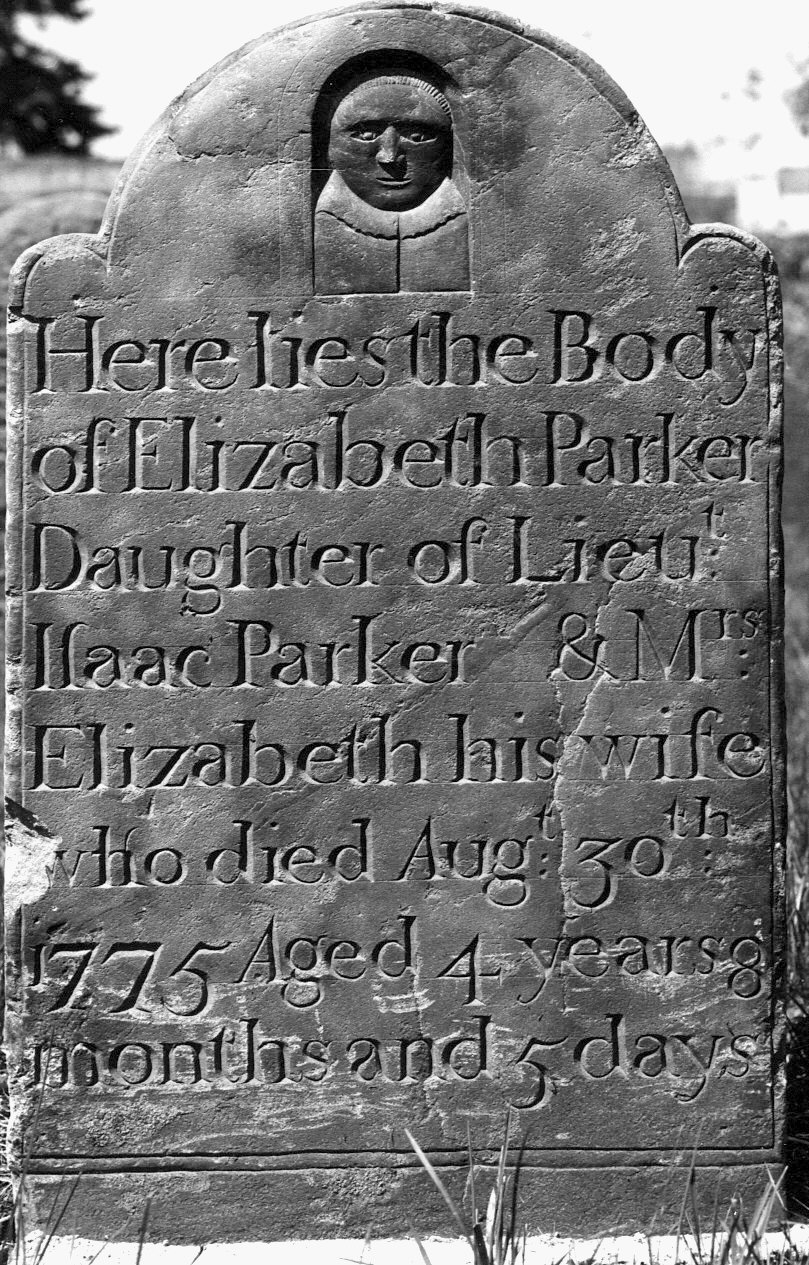 Here lies the Body
of Elizabeth Parker
Daughter of Lieu.ᵗ
Iſaac Parker & M.ʳˢ
Elizabeth his wife
who died Aug.ᵗ 30.ᵗʰ
1775 Aged 4 years 8
months and 5 days